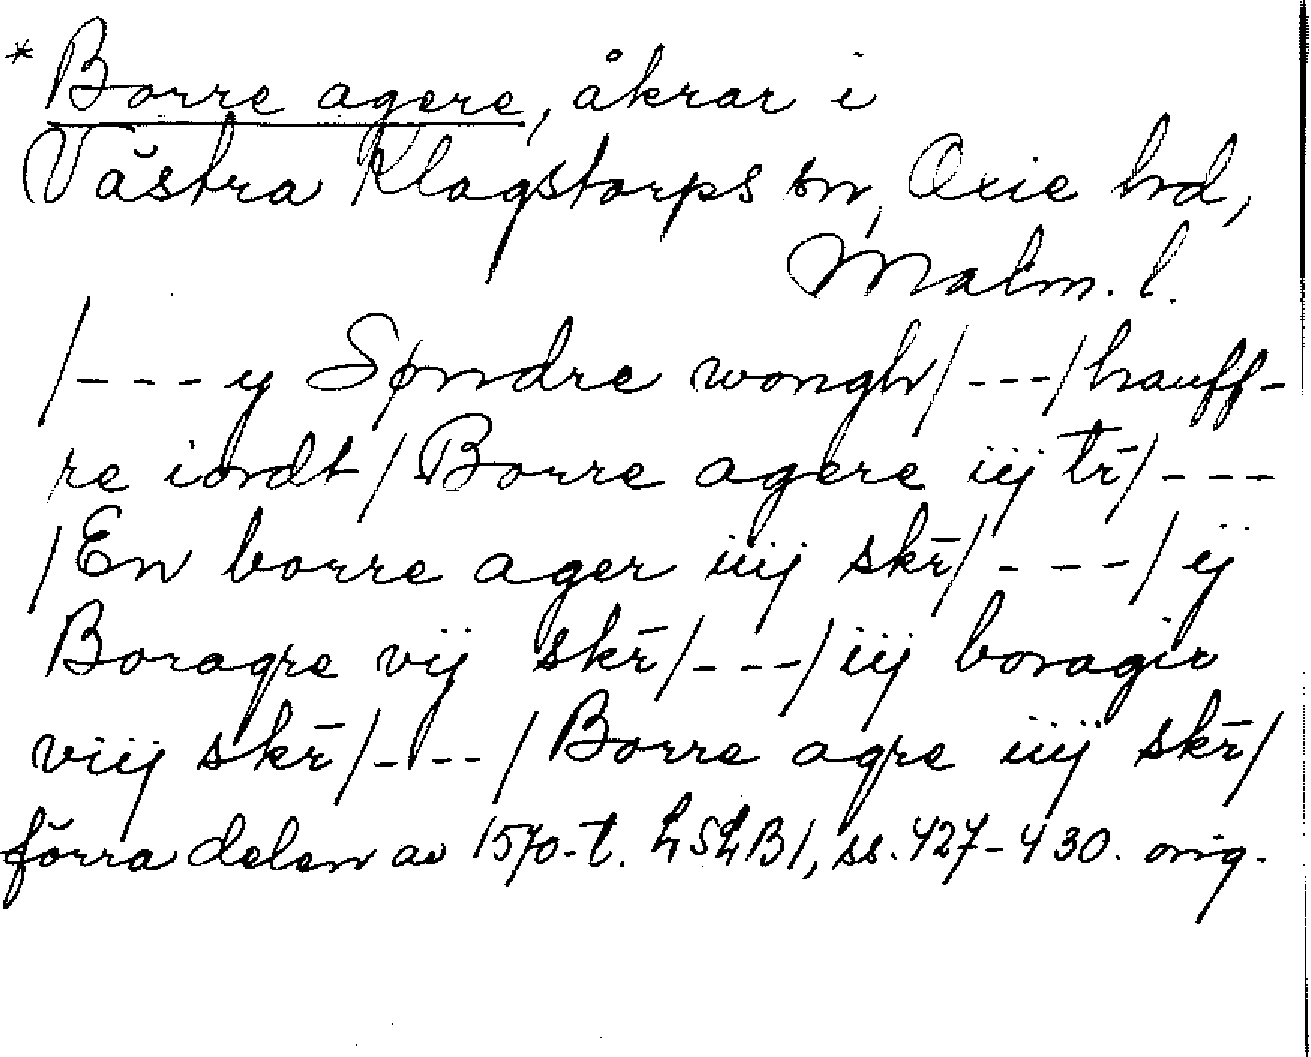 * Borre agere, åkrar i
Västra Klagstorps sn, Oxie hd,
Malm. l.
/---y Søndre wongh/---/hauff-
re iordt/Borre agere iij tr̄/---
/En borre ager iiij skr̄/---/ij
Boragre vij skr̄/---/iij boragir
viij skr̄/---/Borre agre iiij skr̄/
förra delen av 1570-t. LSLB1, ss. 427-430. orig.